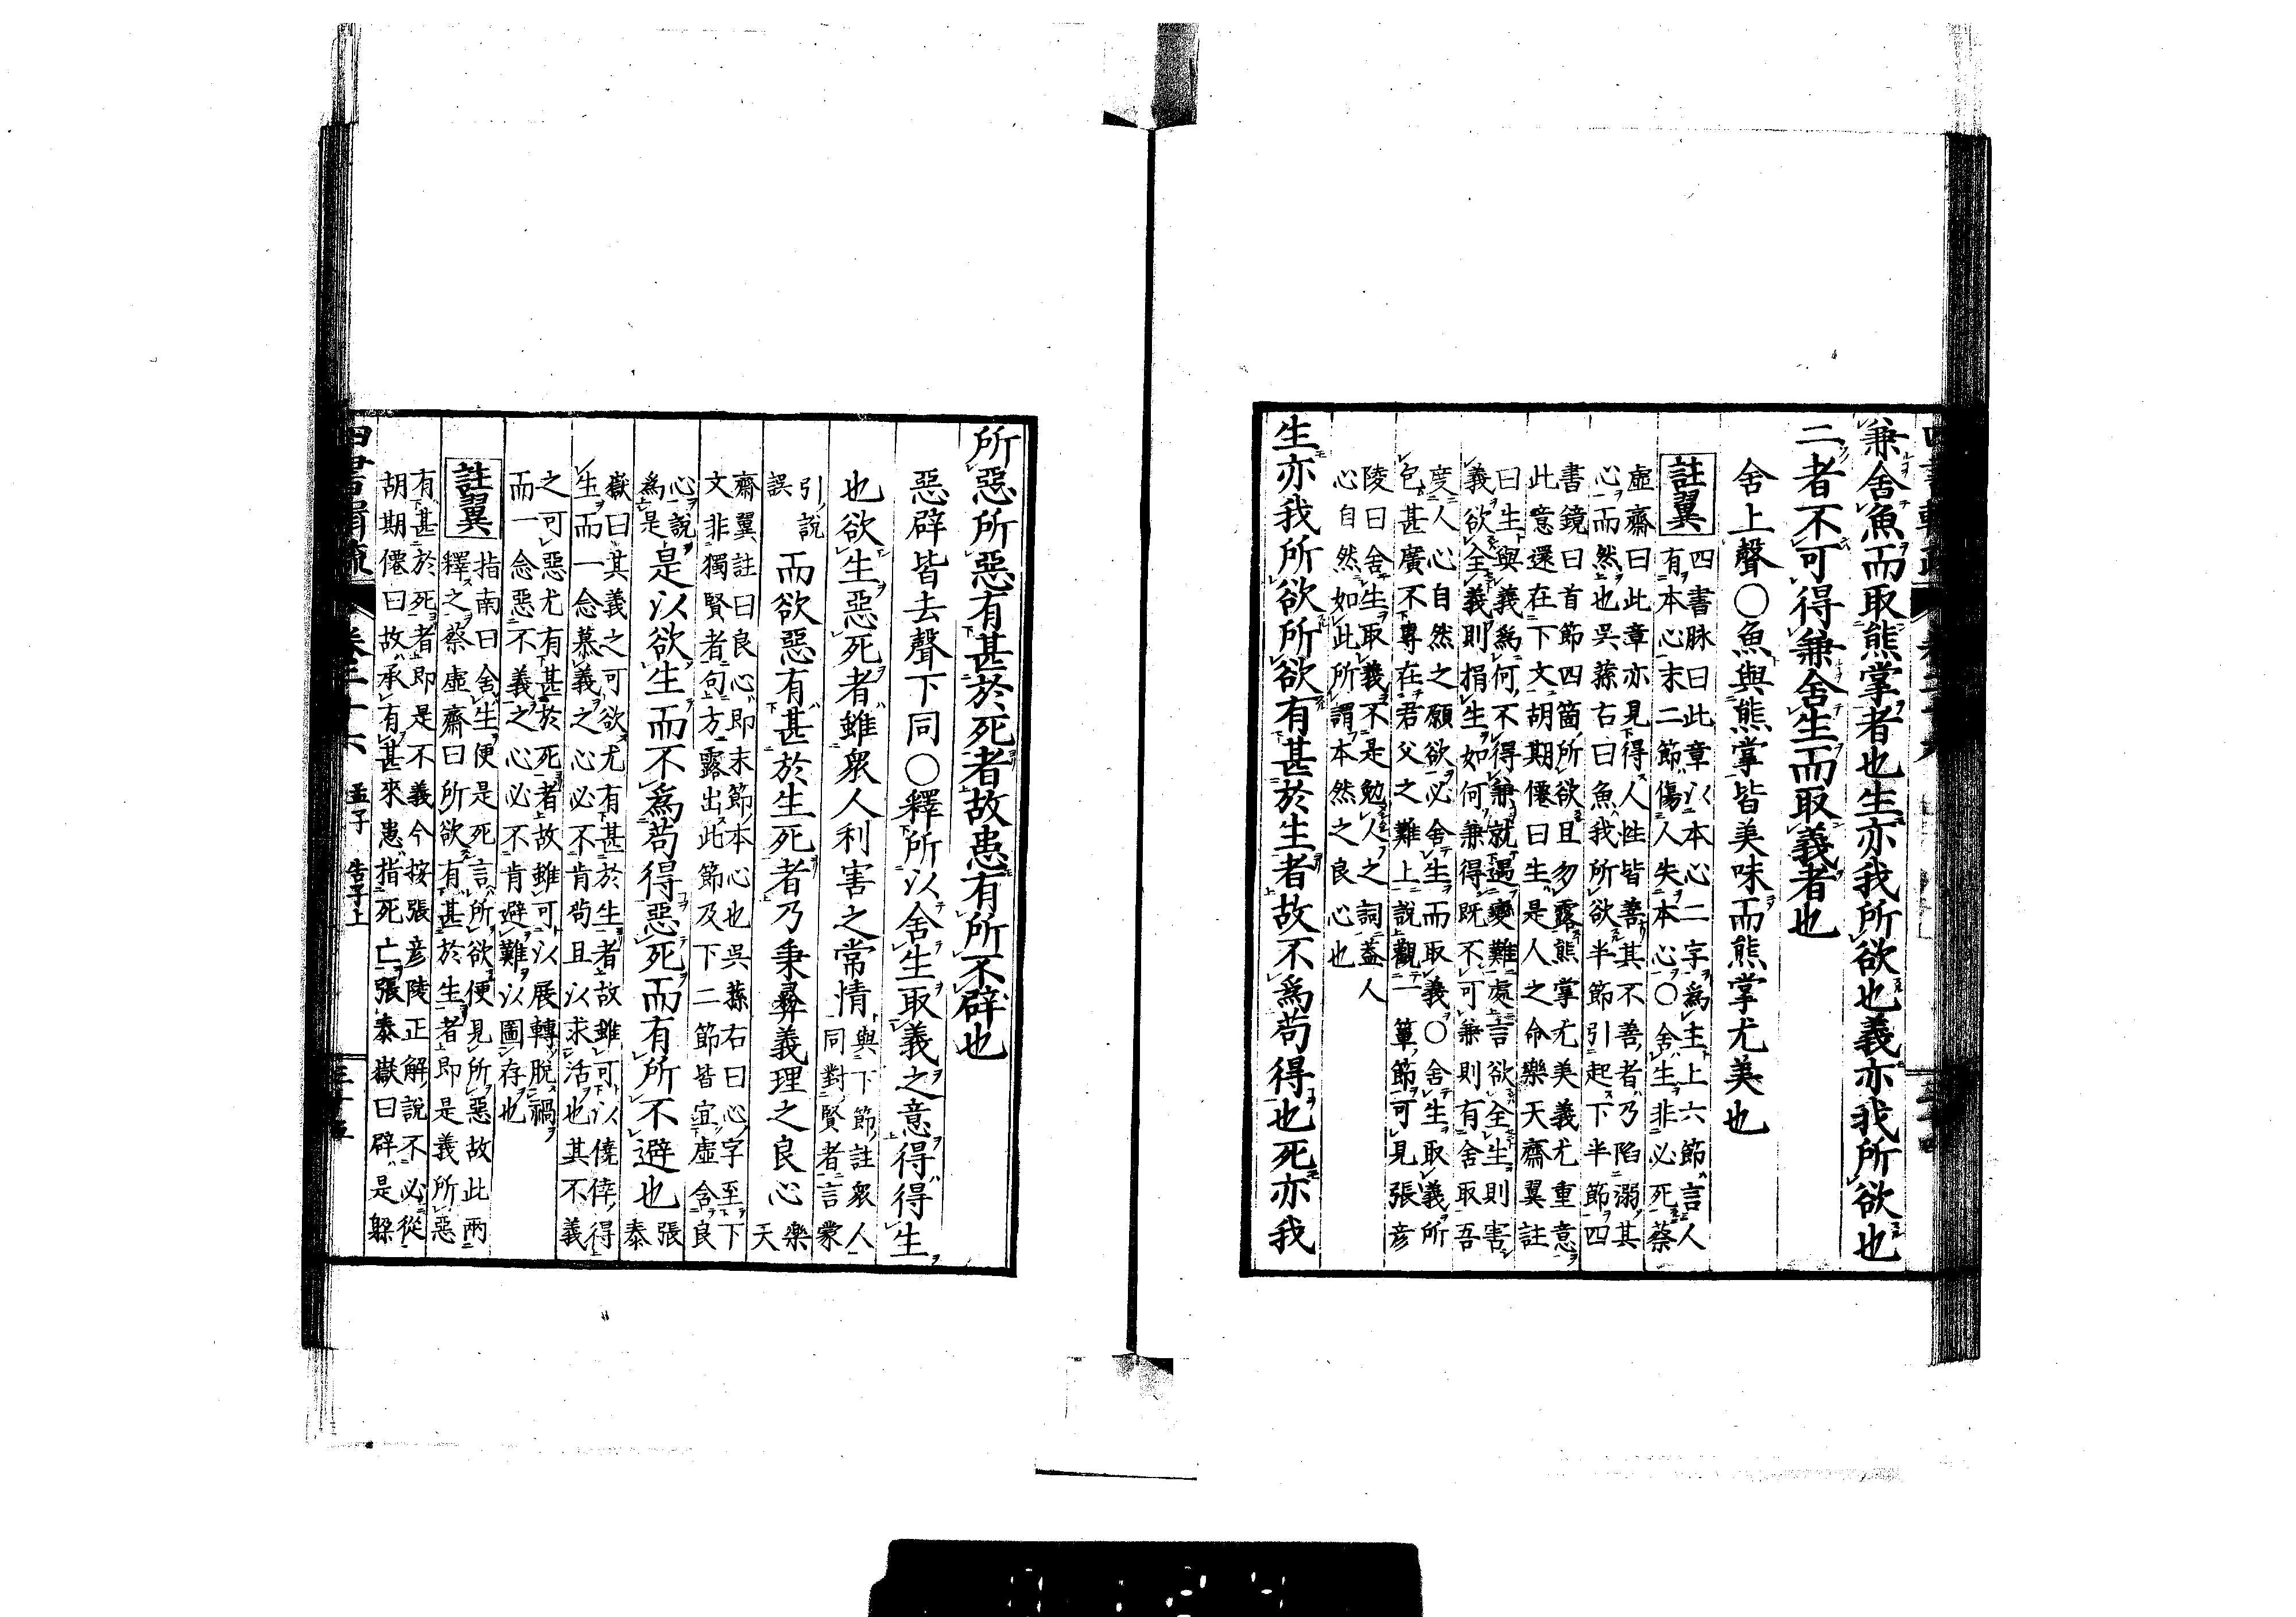 兼舍魚而取熊掌者也生亦我所欲也義亦我所欲也
二者不可得兼舍生而取義者也
舍上聲○魚與熊掌皆美味而熊掌尤美也
註翼
四書脉曰此章以本心二字為主上六節言人
有本心末二節傷人失本心○舍生非必死蔡
虛齋曰此章亦見得人性皆善其不善者乃陷溺其
心而然也吳蓀右曰魚我所欲半節引起下半節四
書鏡曰首節四箇所欲且勿露熊掌尤美義尤重意
此意還在下文胡期僊曰生是人之命樂天齋翼註
曰生與義為何不得兼就遇變難處言欲全生則害
義欲全義則捐生如何兼得既不可兼則有舍取吾
度人心自然之願欲必舍生而取義○舍生取義所
包甚廣不專在君父之難上說觀一簞節可見張彥
陵曰舍生取義不是勉人之詞蓋人
心自然如此所謂本然之良心也
生亦我所欲所欲有甚於生者故不為苟得也死亦我
所惡所惡有甚於死者故患有所不辟也
惡辟皆去聲下同○釋所以舍生取義之意得得生
也欲生惡死者雖眾人利害之常情
與下節註眾人
同對賢者言蒙
引說
誤
而欲惡有甚於生死者乃秉彝義理之良心
樂
天
齋翼註曰良心即末節本心也吳蓀右曰心字至下
文非獨賢者句方露出此節及下二節皆宜虛含良
心說
為是
是以欲生而不為苟得惡死而有所不避也
張
泰
嶽曰其義之可欲尤有甚於生者故雖可以僥倖得
生而一念慕義之心必不肯苟且以求活也其不義
之可惡尤有甚於死者故雖可以展轉脫禍
而一念惡不義之心必不肯避難以圖存也
註翼
指南曰舍生便是死言所欲便見所惡故此兩
釋之蔡虛齋曰所欲有甚於生者即是義所惡
有甚於死者即是不義今按張彥陵正解說不必從
胡期僊曰故承有甚來患指死亡張泰嶽曰辟是躲
卷三十六 孟子 告子上
三十五